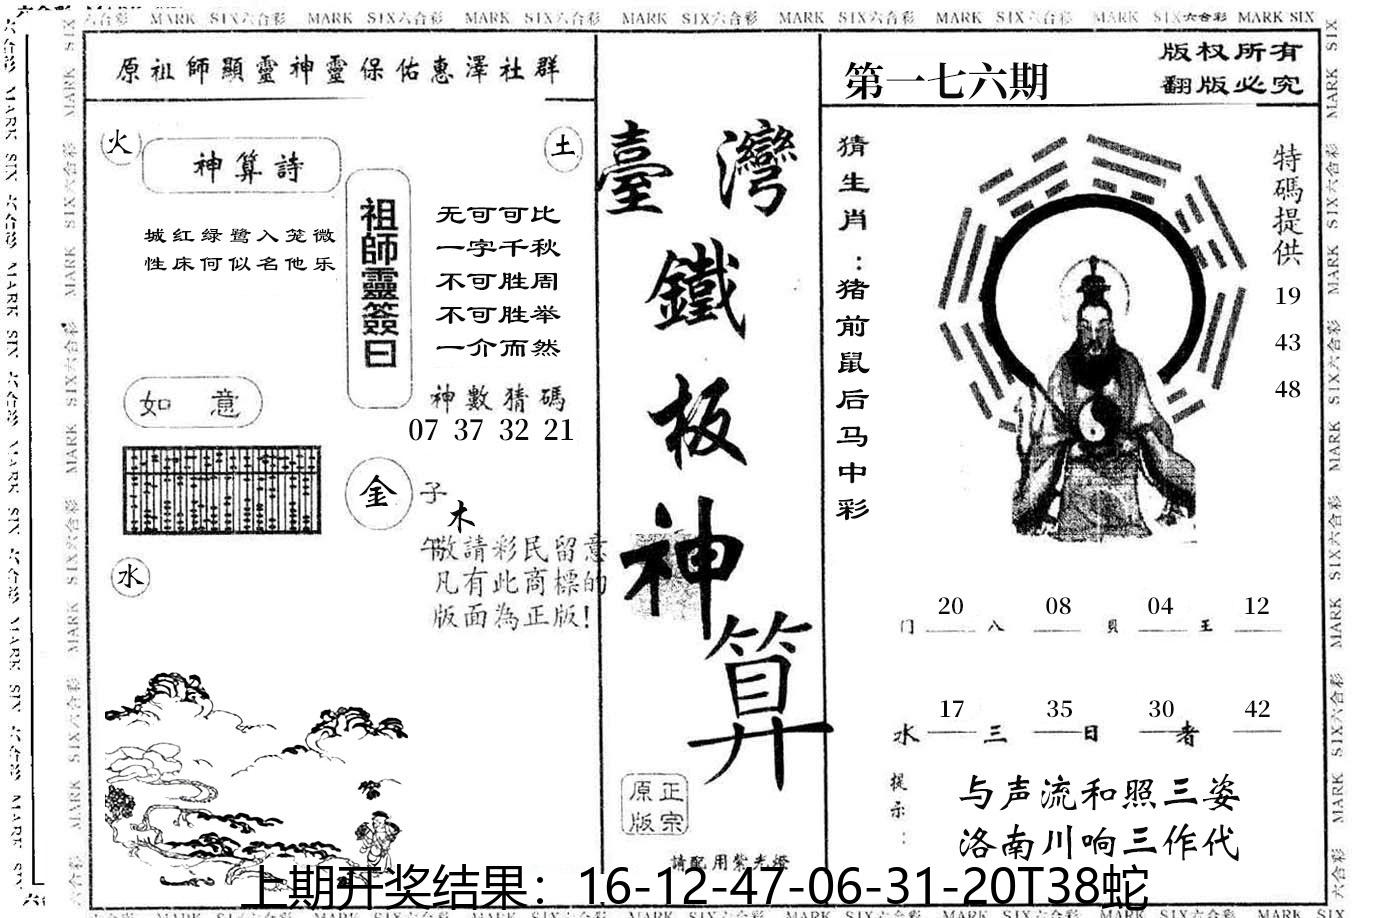 六合彩 MARK SIX六合彩 MARK SIX六合彩 MARK SIX六合彩 MARK SIX六合彩 MARK SIX六合彩 MARK SIX六合彩 MARK SIX六合彩 MARK SIX
原祖師顯靈神靈保佑惠澤社群
火
神算詩
土
城红绿鹭入笼微
性床何似名他乐
祖師靈簽曰
无可可比
一字千秋
不可胜周
不可胜举
一介而然
神數猜碼
07 37 32 21
如意
金
子
木
午
敬請彩民留意
凡有此商標的
版面為正版!
水
臺灣
鐵
板
神
算
正宗
原版
請配用紫光燈
第一七六期
版权所有
翻版必究
猜生肖:猪前鼠后马中彩
特碼提供
19
43
48
20 08 04 12
门 八 貝 王
17 35 30 42
水 三 日 者
提示:
与声流和照三姿
洛南川响三作代
上期开奖结果：16-12-47-06-31-20T38蛇